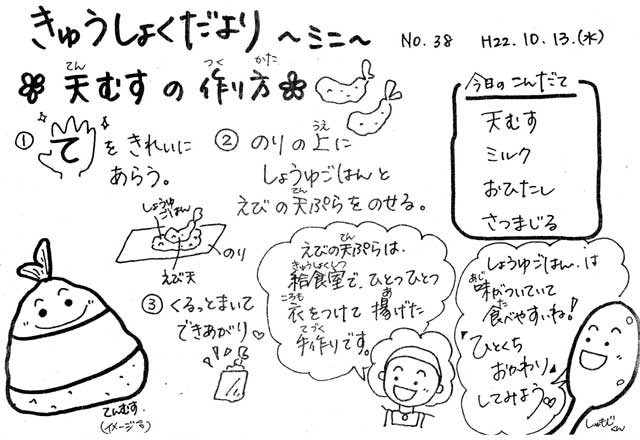 きゅうしょくだより ～ミニ～ No.38 H22.10.13.(水)
天むすの作り方
てん つく かた
今日のこんだて
天むす
ミルク
おひたし
さつまじる
① てをきれいに
あらう。
② のりの上に
うえ
しょうゆごはんと
えびの天ぷらをのせる。
てん
しょうゆ
ごはん
のり
えび天
③ くるっとまいて
できあがり♡
てんむす.
(イメージ号)
えびの天ぷらは、
てん
給食室で、ひとつひとつ
きゅうしょくしつ
衣をつけて揚げた
ころも あ
手作りです。
てづく
しょうゆごはんは
味がついていて
あじ
食べやすいね!
た
「ひとくち
おかわり」
してみよう♡
しゃもじくん